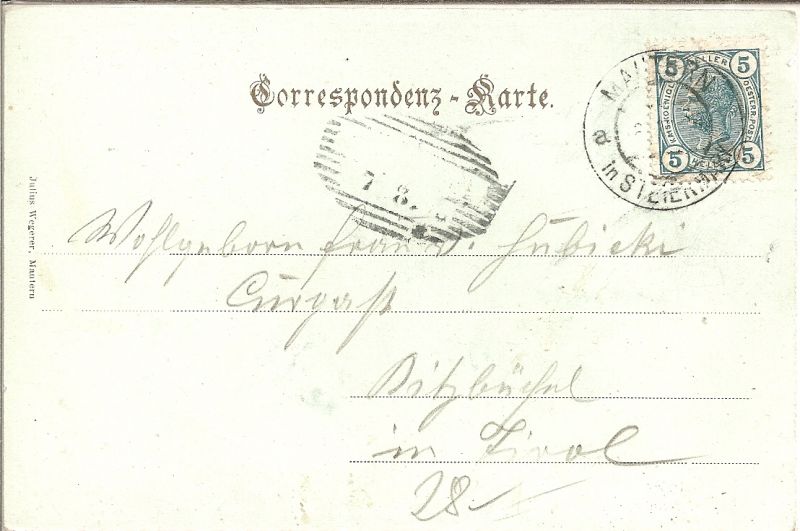 Correspondenz - Karte.
MAUTERN
in STEIERMARK
a
5 HELLER 5
KAIS.KOENIGL.
OESTERR.POST.
5 HELLER 5
7 8.
Wohlgeborn frau v. Hubicki
Curgast
Kitzbüchel
in Tirol
28
Julius Wegerer, Mautern